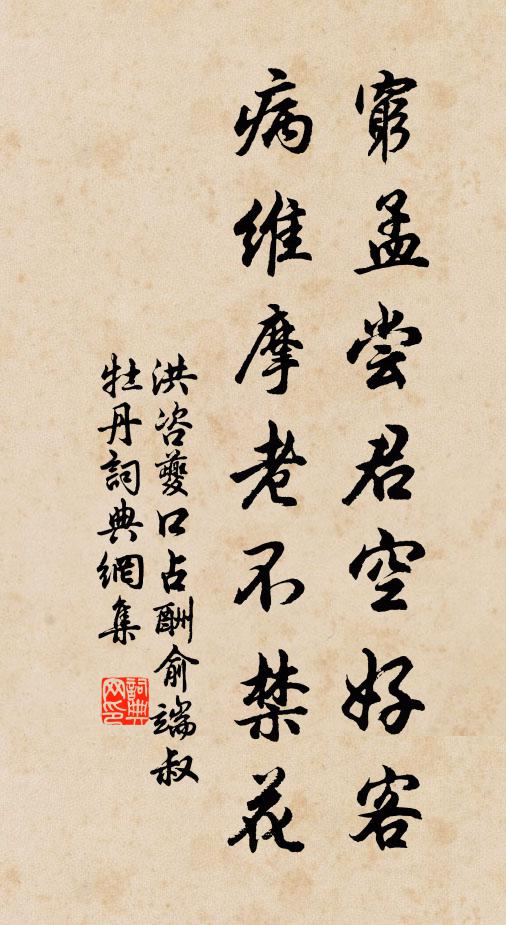 窮孟尝君空好客
病維摩老不禁花
洪咨夔口占酬俞端叔
牡丹詞典網集
詞典
网印